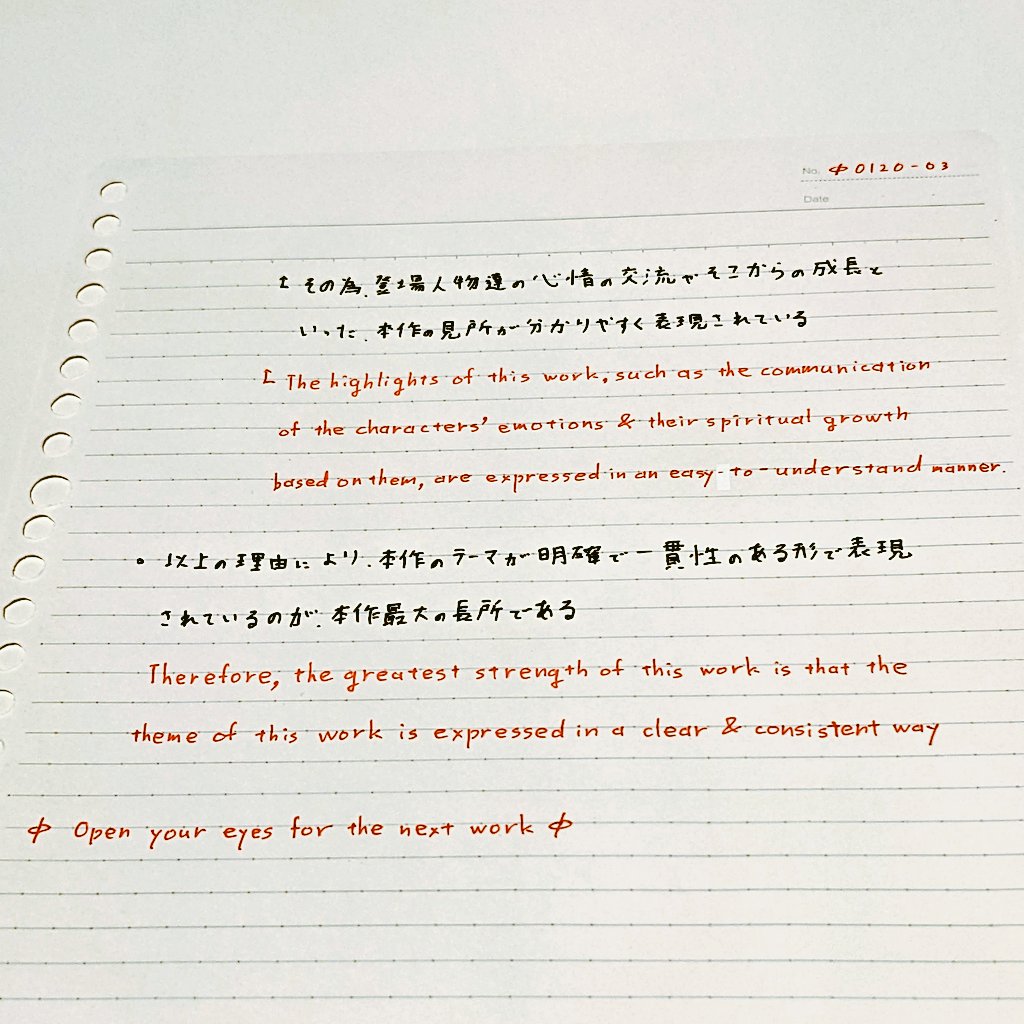 No. φ0120-03
Date
[ その為、登場人物達の心情の交流やそこからの成長と
いった、本作の見所が分かりやすく表現されている
[ The highlights of this work, such as the communication
of the characters' emotions & their spiritual growth
based on them, are expressed in an easy-to-understand manner.
• 以上の理由により、本作のテーマが明確で一貫性のある形で表現
されているのが、本作最大の長所である
Therefore, the greatest strength of this work is that the
theme of this work is expressed in a clear & consistent way
φ Open your eyes for the next work φ